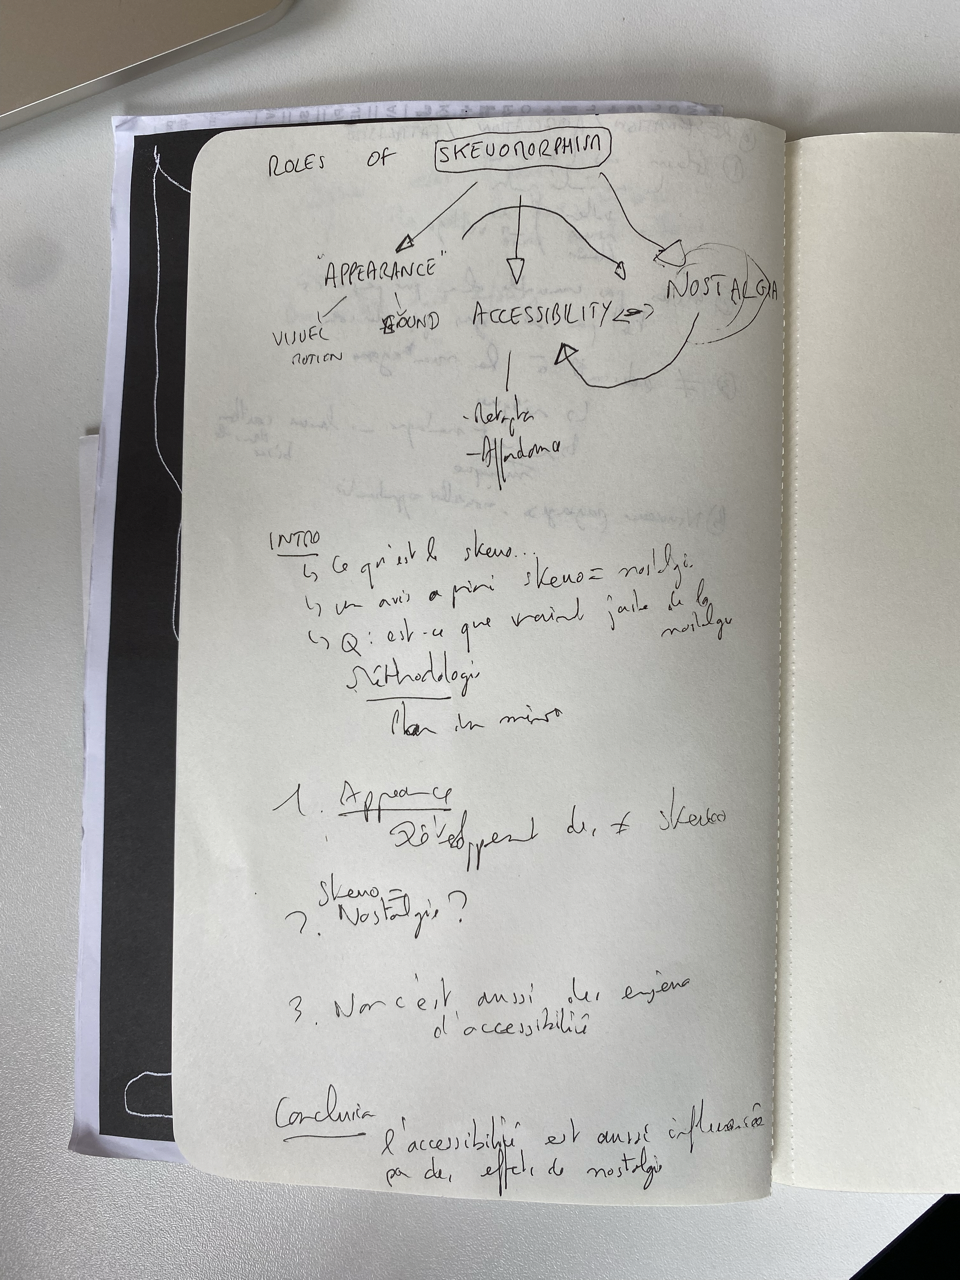 ROLES OF SKEUOMORPHISM
"APPEARANCE"
NOSTALGIA
ACCESSIBILITY <=>
VISUEL
SOUND
MOTION
- Affordance
INTRO
↳ Ce qu'est le skeuo...
↳ un avis a priori skeuo = nostalgi.
↳ Q : est-ce que vraiment juste de la
nostalgie
Méthodologie
Plan du
1. Appearance
Développement des ≠ skeuo
Skeuo =
2. Nostalgie ?
3. Non c'est aussi des enjeux
d'accessibilité
Conclusion
l'accessibilité est aussi influencée
par des effets de nostalgie